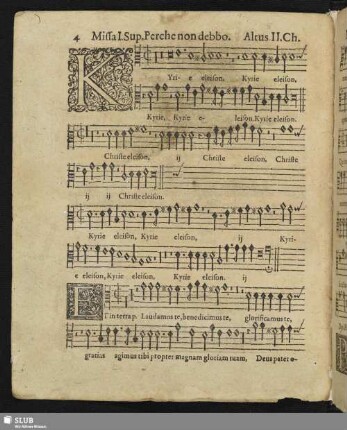 4 Missa I. Sup. Perche non debbo. Altus II. Ch.
KYrie eleison. Kyrie eleison,
Kyrie, Kyrie eleison. Kyrie eleison.
Christe eleison, ij Christe eleison, Christe
ij ij Christe eleison.
Kyrie eleison, Kyrie eleison, ij Kyri-
e eleison, Kyrie eleison. Kyrie eleison. ij
ET in terra p. Laudamus te, benedicimus te, glorificamus te,
gratias agimus tibi propter magnam gloriam tuam, Deus pater o-
SLUB
Wir führen Wissen.